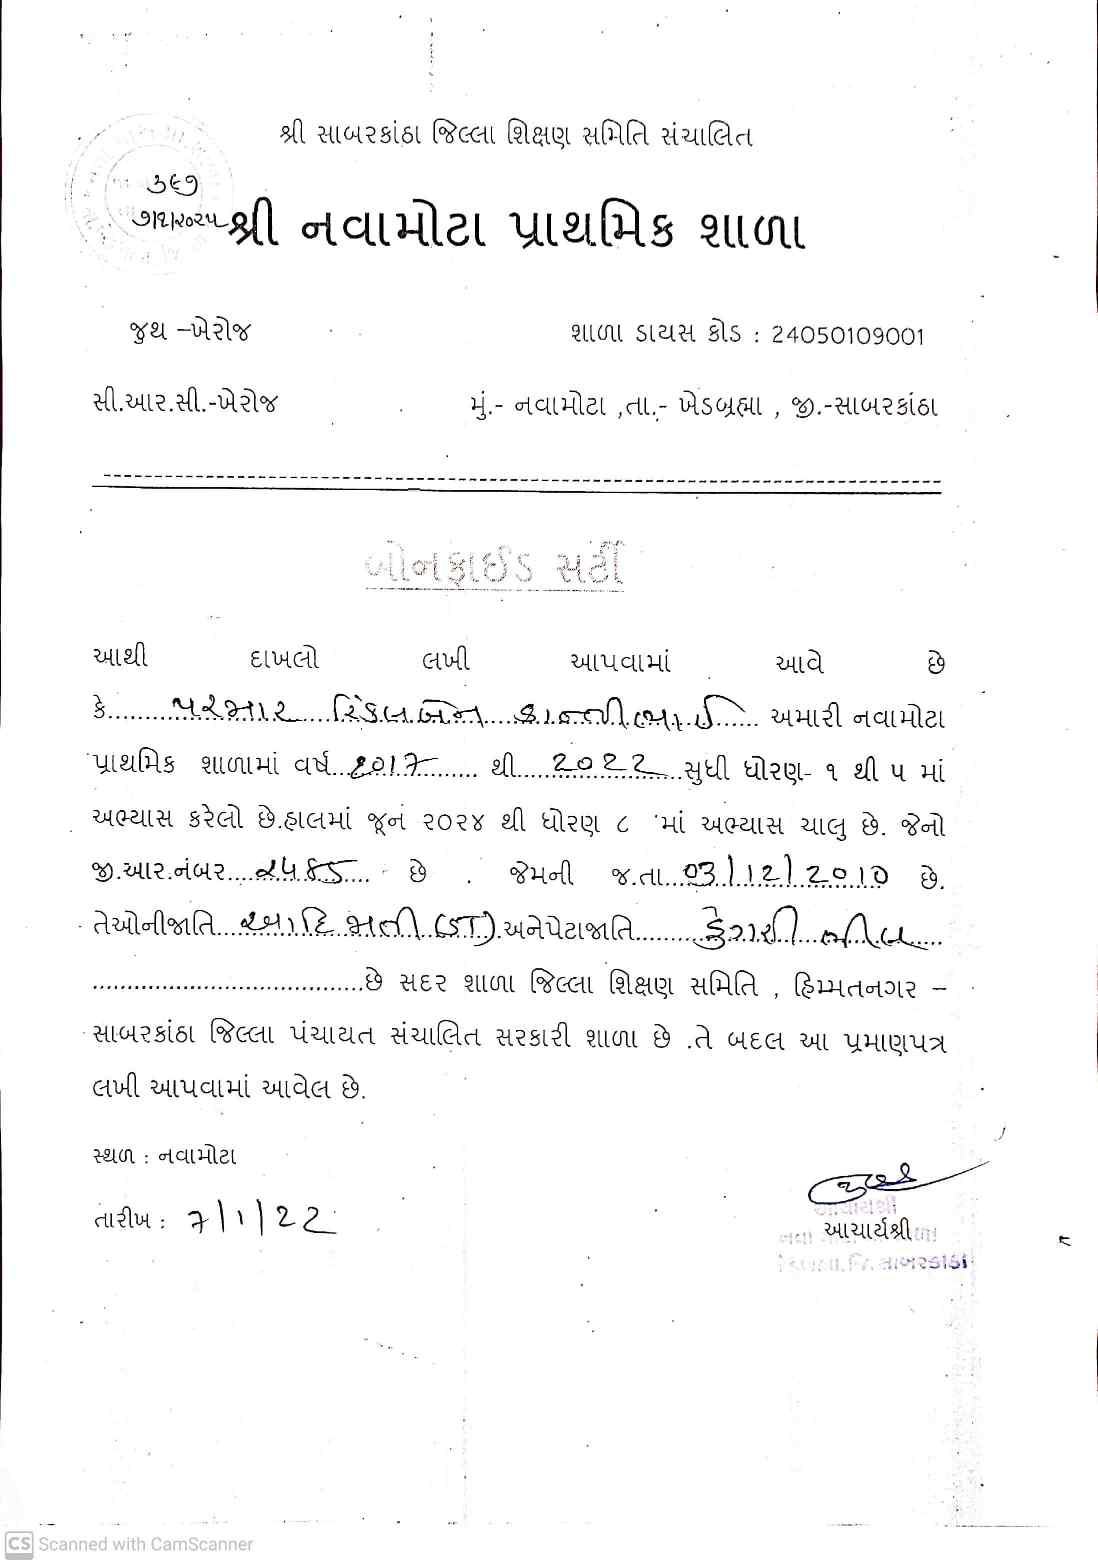 શ્રી સાબરકાંઠા જિલ્લા શિક્ષણ સમિતિ સંચાલિત
૩૯૭
૭/૧/૨૦૨૫
શ્રી નવામોટા પ્રાથમિક શાળા
જુથ –ખેરોજ શાળા ડાયસ કોડ : 24050109001
સી.આર.સી.-ખેરોજ મું.- નવામોટા ,તા.- ખેડબ્રહ્મા , જી.-સાબરકાંઠા
બોનફાઈડ સર્ટી
આથી દાખલો લખી આપવામાં આવે છે
કે..........પરમાર....રિંકલબેન....કાન્તીભાઈ...... અમારી નવામોટા
પ્રાથમિક શાળામાં વર્ષ..2017....... થી....2022...સુધી ધોરણ- ૧ થી ૫ માં
અભ્યાસ કરેલો છે.હાલમાં જૂન ૨૦૨૪ થી ધોરણ ૮ માં અભ્યાસ ચાલુ છે. જેનો
જી.આર.નંબર.... .... છે . જેમની જ.તા...03/12/2010 છે.
તેઓનીજાતિ... (ST).અનેપેટાજાતિ........ડુંગરી ભીલ....
.......................................છે સદર શાળા જિલ્લા શિક્ષણ સમિતિ , હિમ્મતનગર –
સાબરકાંઠા જિલ્લા પંચાયત સંચાલિત સરકારી શાળા છે .તે બદલ આ પ્રમાણપત્ર
લખી આપવામાં આવેલ છે.
સ્થળ : નવામોટા
તારીખ : 7/1/22
આચાર્યશ્રી
આચાર્યશ્રી
સાબરકાંઠા
CS Scanned with CamScanner